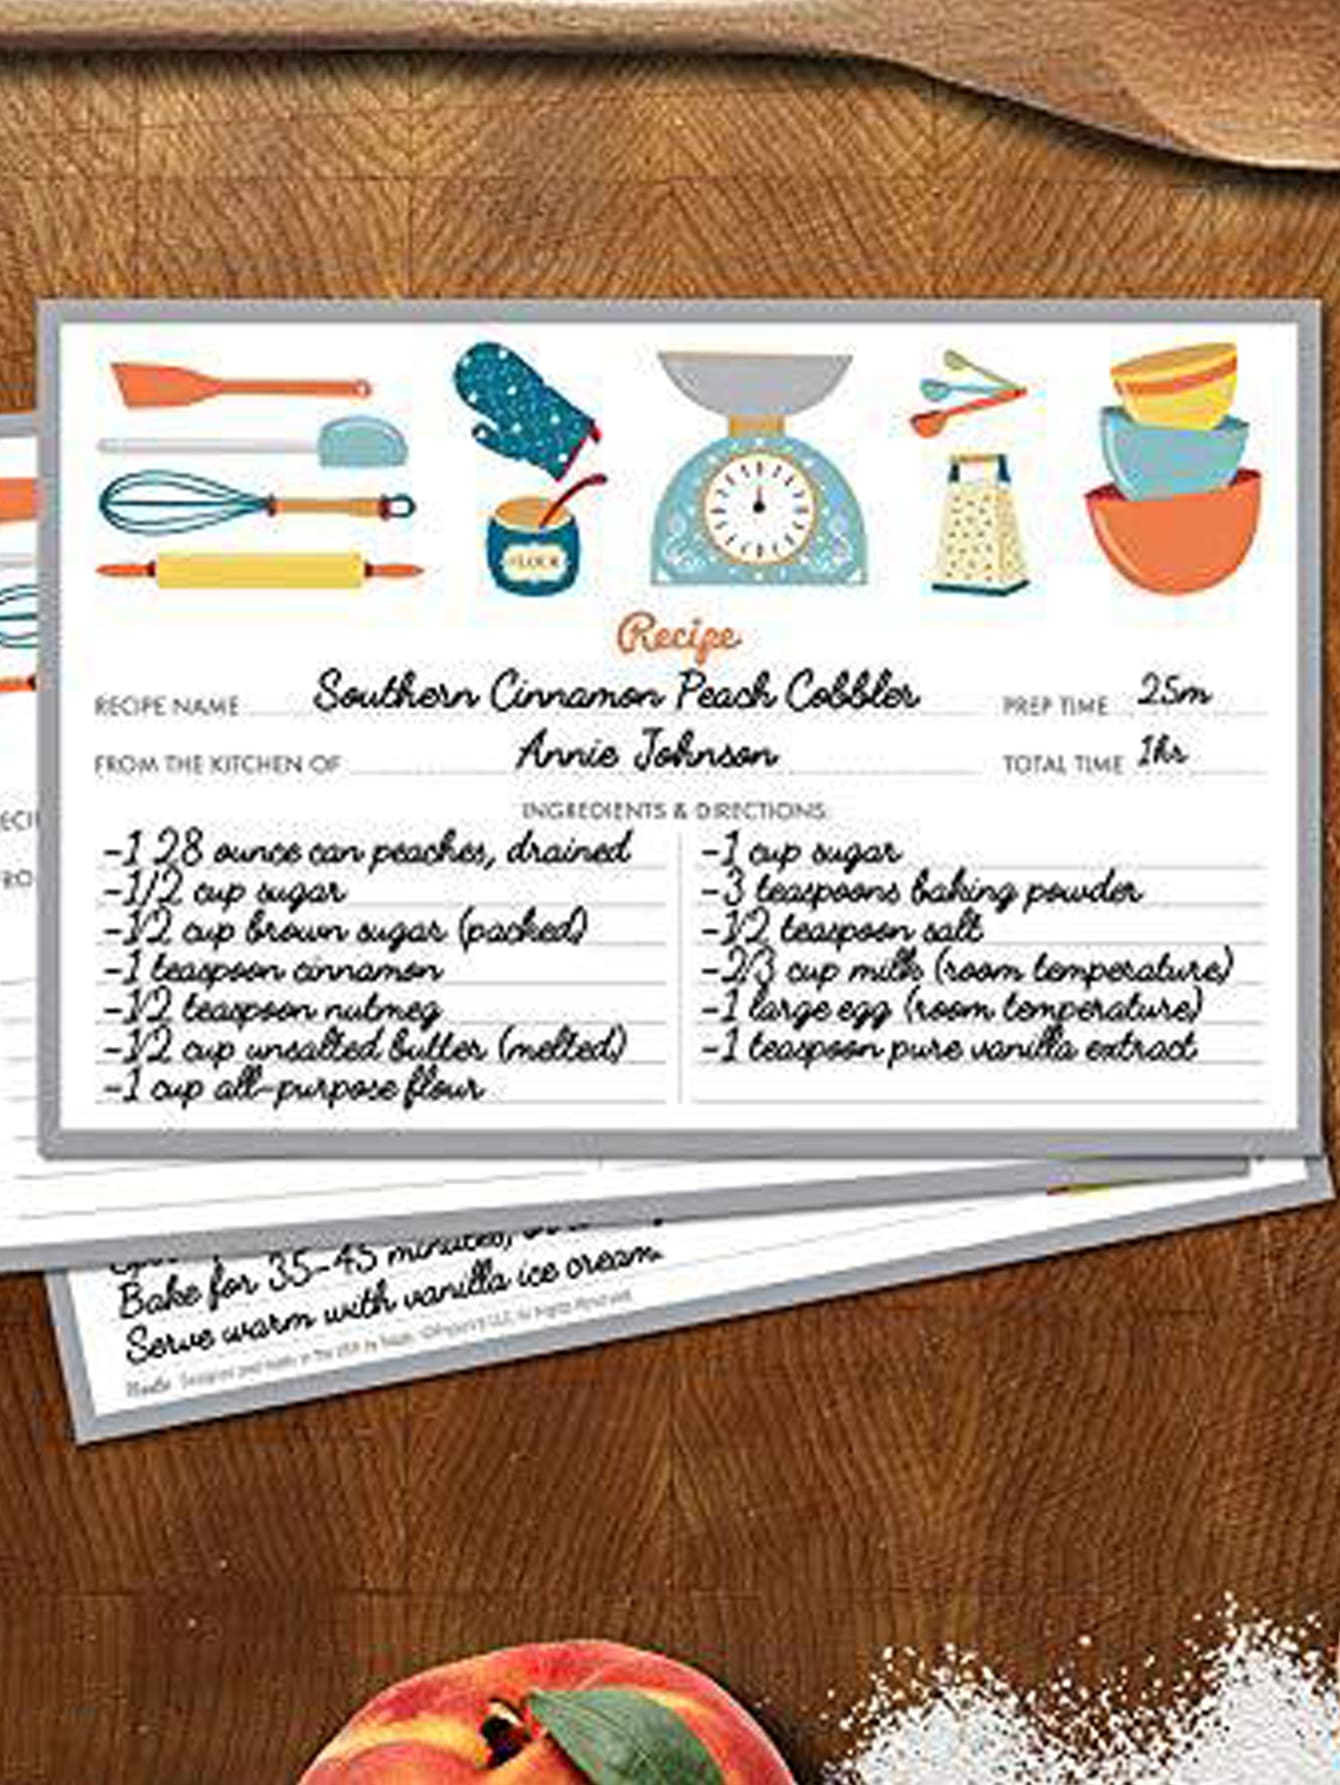 FLOUR
Recipe
RECIPE NAME Southern Cinnamon Peach Cobbler PREP TIME 25m
FROM THE KITCHEN OF Annie Johnson TOTAL TIME 1hr
INGREDIENTS & DIRECTIONS:
-1 28 ounce can peaches, drained
-1/2 cup sugar
-1/2 cup brown sugar (packed)
-1 teaspoon cinnamon
-1/2 teaspoon nutmeg
-1/2 cup unsalted butter (melted)
-1 cup all-purpose flour
-1 cup sugar
-3 teaspoons baking powder
-1/2 teaspoon salt
-2/3 cup milk (room temperature)
-1 large egg (room temperature)
-1 teaspoon pure vanilla extract
Bake for 35-45 minutes,
Serve warm with vanilla ice cream.